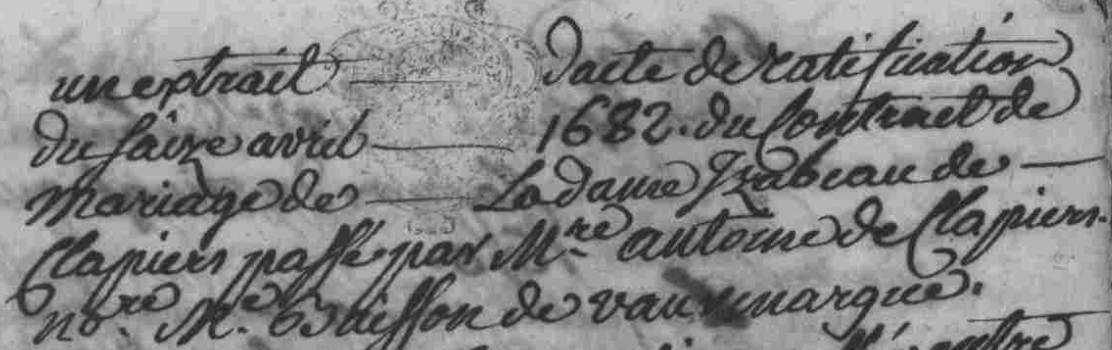 un extrait dacte de ratification
du saize avril 1682. du Contract de
mariage de La dame Izabeau de
Clapiers passé par M.re antoine de Clapiers.
no.re M.e Buisson de vauvenargue.